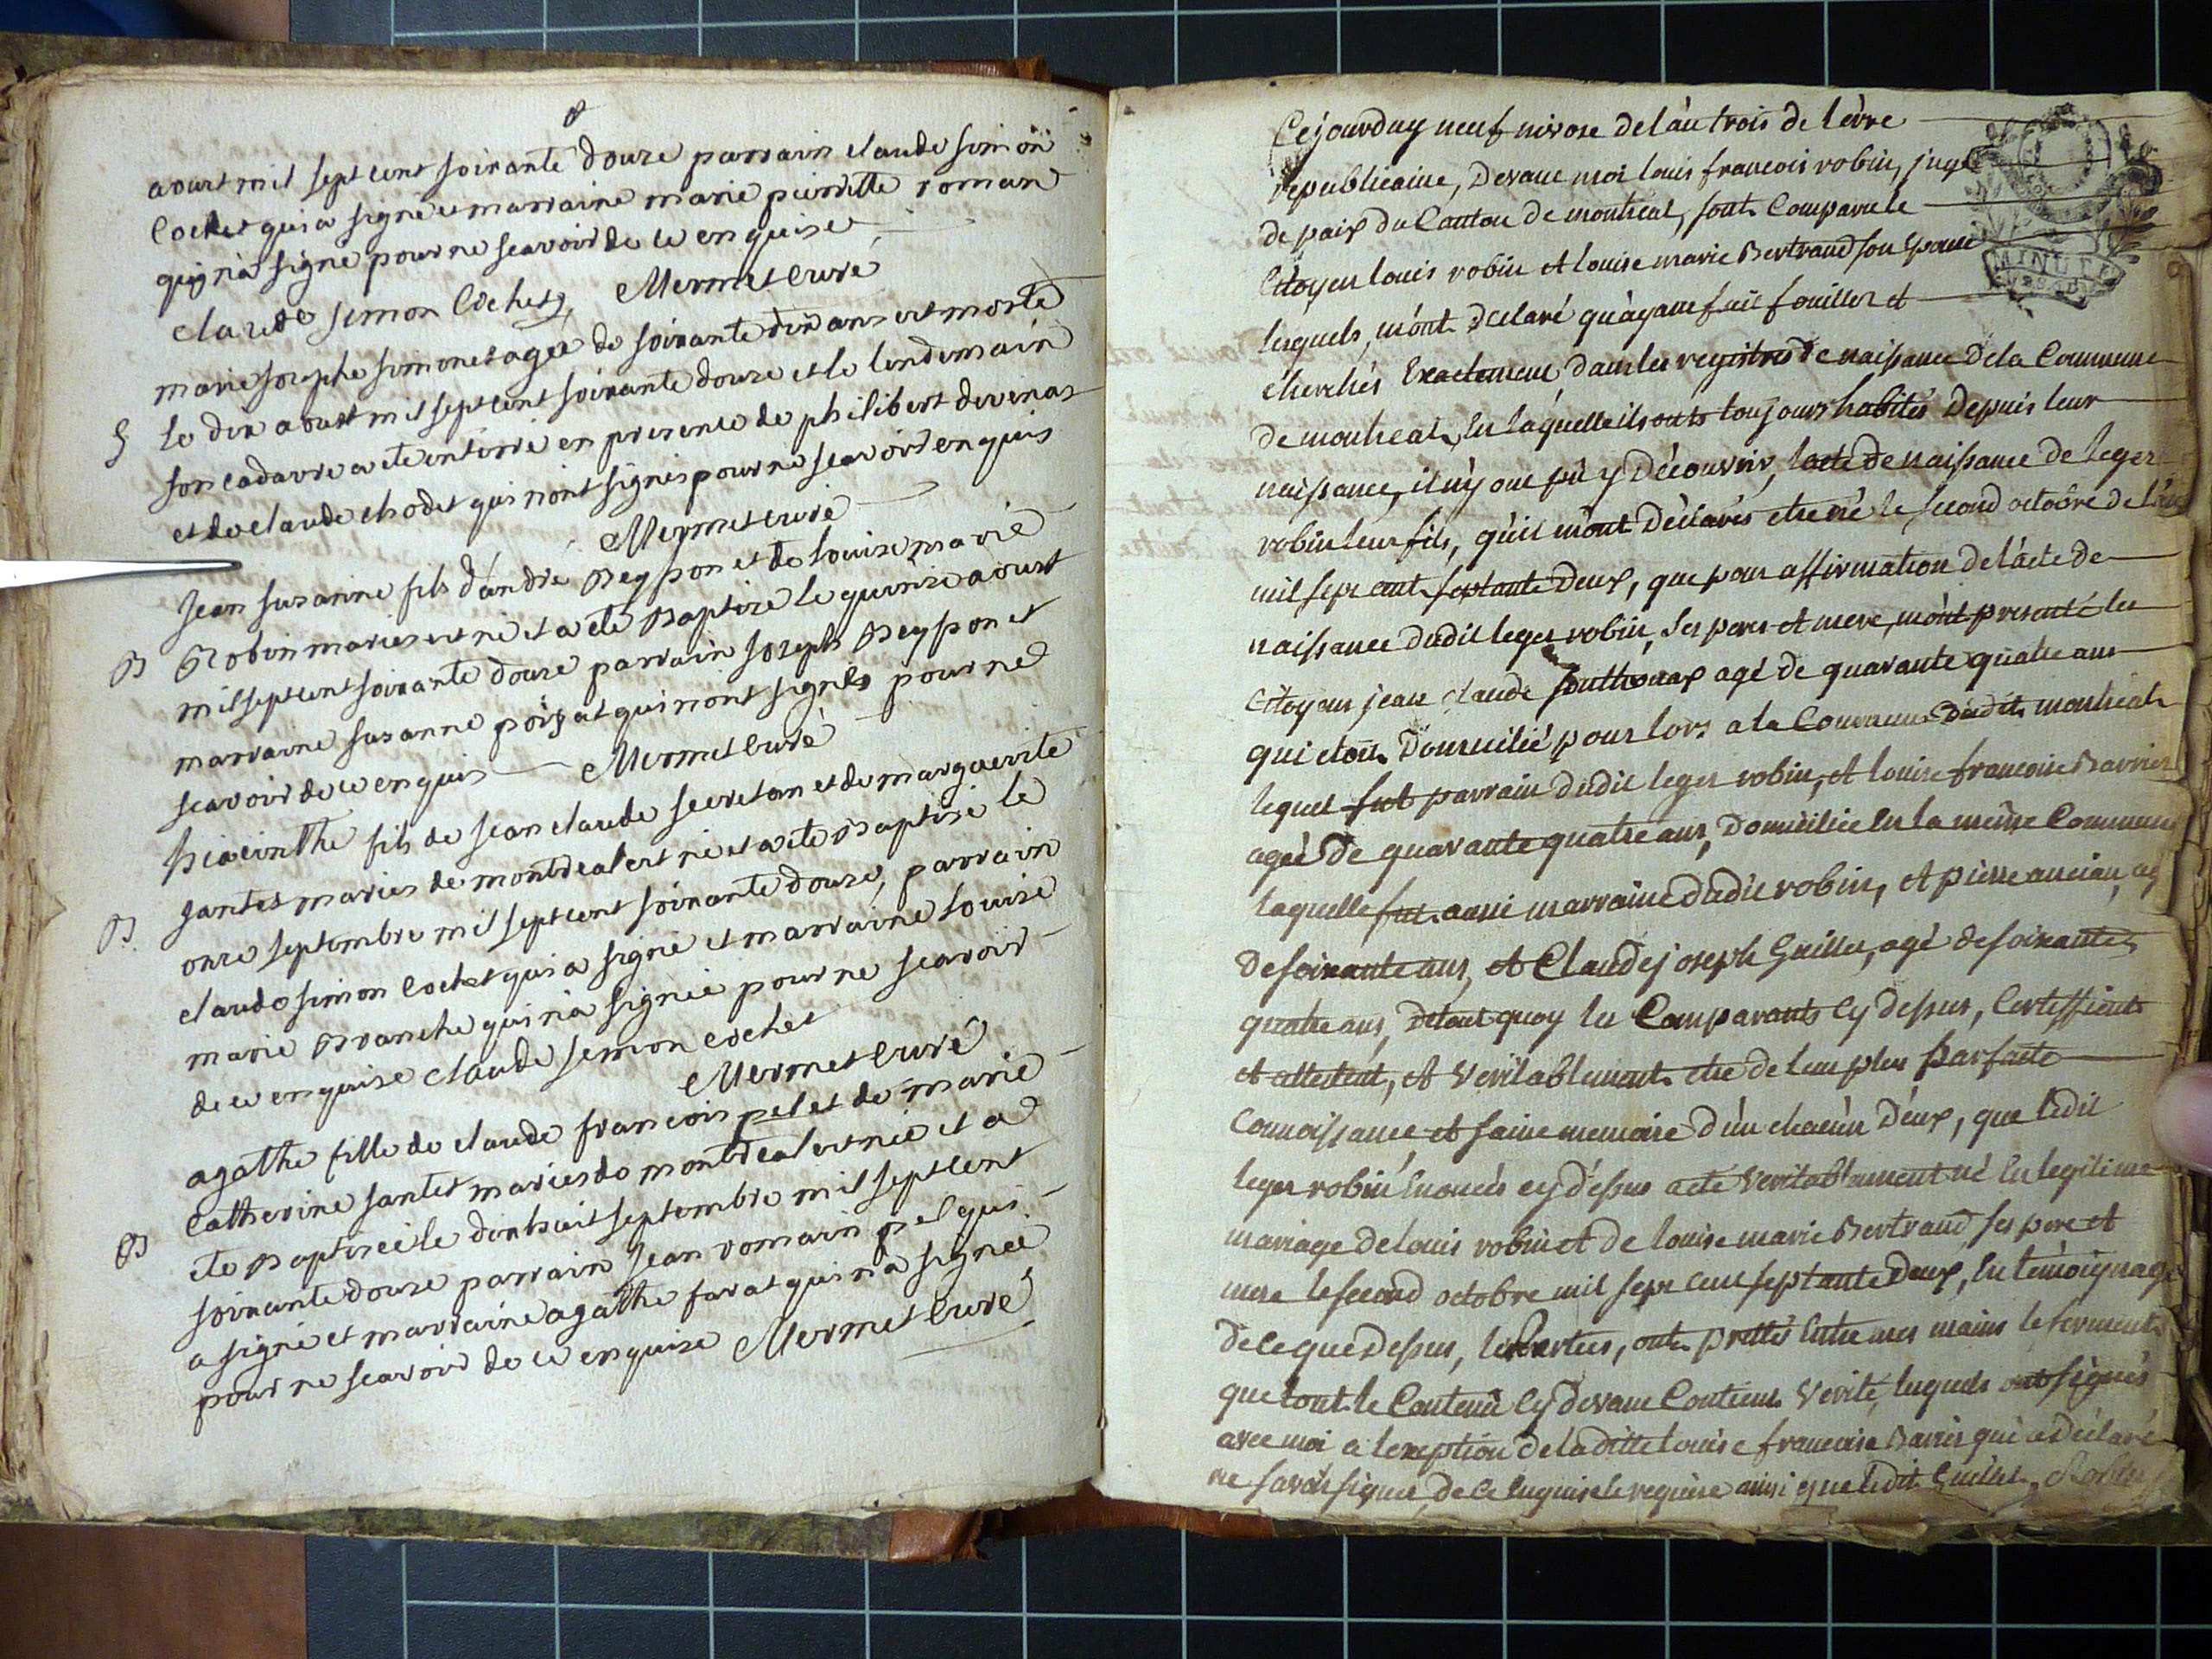 aoust mil sept cent soixante douze parrain claude simon
Cochet qui a signé et marraine marie pierrette roman
qui n'a signé pour ne scavoir de ce enquise
claude simon Cochet, Mermet curé
marie josephe simonet agée de soixante dix ans est morte
S le dix aoust mil sept cent soixante douze et le lendemain
son cadavre a eté enterré en presence de philibert
et de claude chodet qui n'ont signés pour ne scavoir enquis
Mermet curé
Jean suzanne fils d'andré Beysson et de louise marie
B Robin mariés est né et a eté Baptize le quinze aoust
mil sept cent soixante douze parrain joseph Beysson et
marraine suzanne poizat qui n'ont signés pour ne
scavoir de ce enquis Mermet curé
hiacinthe fils de jean claude secretan et de marguerite
santet mariés de montreal est né et a eté Baptise le
B. onze septembre mil sept cent soixante douze, parrain
claude simon Cochet qui a signé et marraine louise
marie Branche qui n'a signée pour ne scavoir
de ce enquise claude simon cochet
Mermet curé
agathe fille de claude francois pelet de marie
Catherine santet mariés de montreal est née et a
B eté Baptizeé le dixhuit septembre mil sept cent
soixante douze parrain Jean romain pel qui
a signé et marraine agathe farat qui n'a signeé
pour ne scavoir de ce enquise Mermet curé
Cejourduy neuf nivose de l'an trois de l'ère
republicaine, Devant moi louis francois robin, juge
de paix du Canton de montreal, sont Comparu le
Citoyen louis robin et louise marie Bertrand son epouse
lesquels, m'ont declaré qu'ayant fait fouiller et
cherchés Exactement dans les registres de naissance de la Commune
de montreal, En laquelle ils onts toujours habités Depuis leur
naissance, il n'y ont pû y Découvrir, l'acte de naissance de leger
robin leur fils, qu'il m'ont Déclarés etre né le second octobre de l'an
mil sept cent septante Deux, que pour affirmation de l'acte de
naissance dudit leger robin, ses pere et mere, m'ont presenté les
Citoyens jean claude agé de quarante quatre ans
qui etoit Domicilié pour lors a la Commune dudit montreal
lequel fut parrain dudit leger robin, et louise francoise Barrier
ageé de quarante quatre ans, Domiciliée En la même Commune
laquelle fut aussi marraine dudit robin, et pierre ancian, ag
de soixante ans, et Claude joseph Guillet, agé de soixante
quatre ans, Detout quoy les Comparants Cy dessus, Certiffient
et attestent, et Veritablement etre de leur plus parfaite
Connoissance et saine memoire d'un chacun D'eux, que ledit
leger robin Enoncés cy dessus a eté Veritablement né En legitime
mariage de louis robin et de louise marie Bertrand, ses pere et
mere le second octobre mil sept cent septante Deux, En témoignage
de ce que Dessus, les Parties, ont prettés Entre mes mains le serment
que tout le Contenû Cy devant Contient Verité, lesquels ont signés
avec moi a lexeption de la ditte louise francoise Barrier qui a Déclaré
ne savoir signer, de ce Enquise et requise ainsi que ledit Guillet
MINUTE